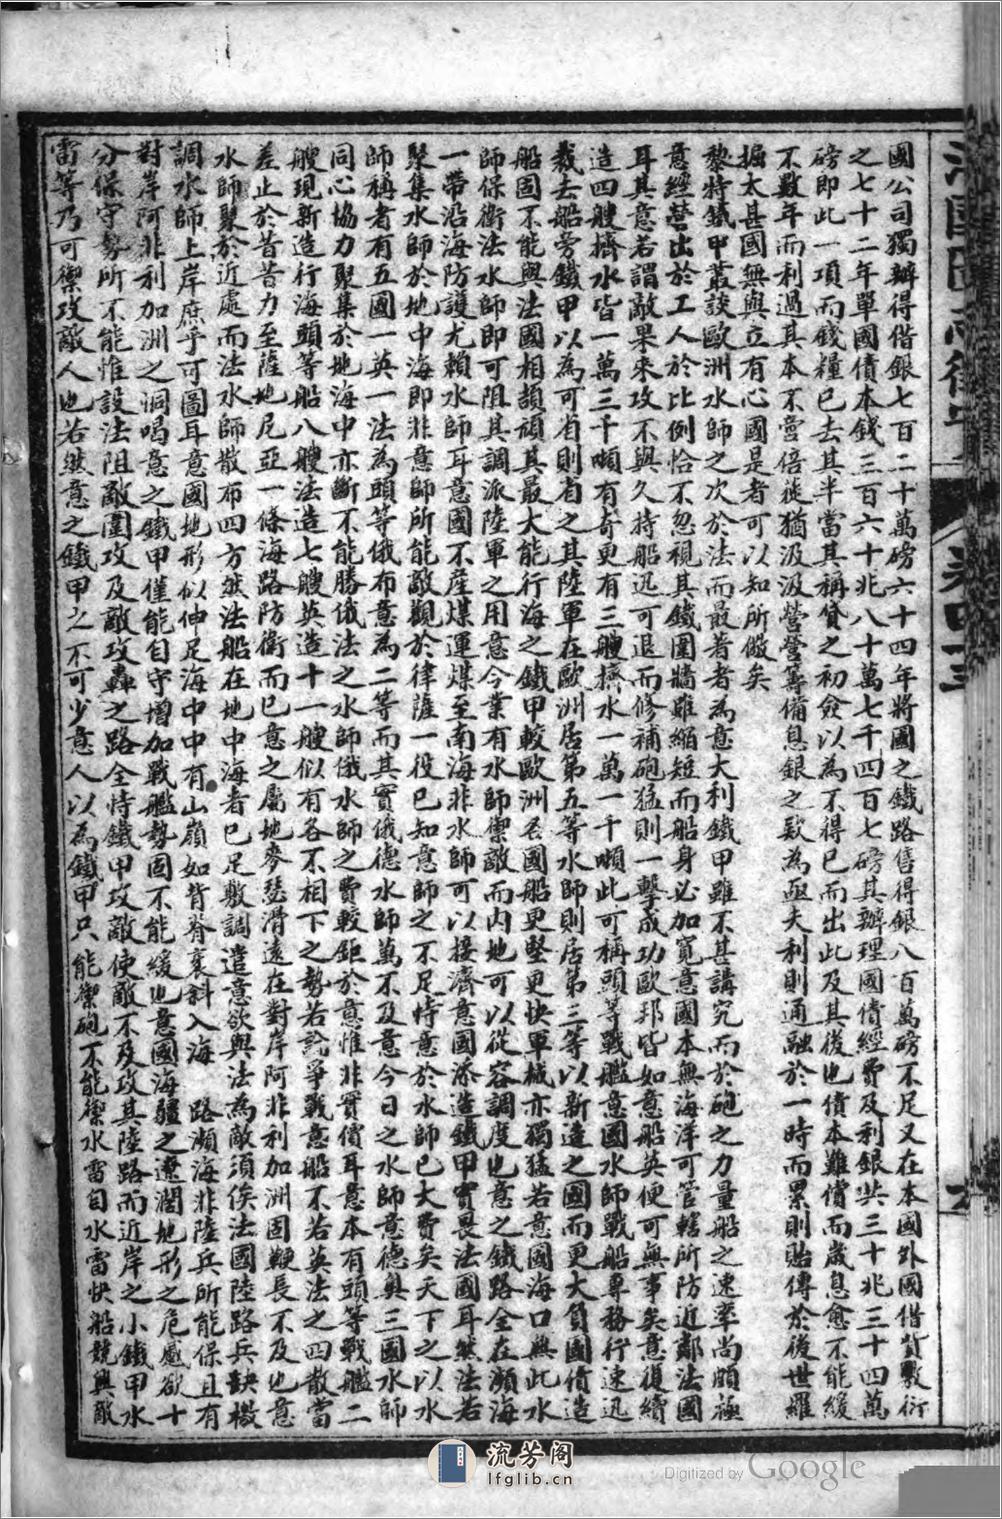 國公司獨辦得借銀七百二十萬磅六十四年將國之鐵路售得銀八百萬磅不足又在本國外國借貸敷衍
之七十二年單國債本錢三百六十兆八十萬七千四百七磅其辦理國債經費及利銀共三十兆三十四萬
磅即此一項而錢糧已去其半當其稱貸之初僉以為不得已而出此及其後也債本難償而歲息愈不能緩
不數年而利過其本不啻倍蓰猶汲汲營營籌備息銀之欵為亟夫利則通融於一時而累則貽傳於後世羅
掘太甚國無與立有心國是者可以知所儆矣
黎特鐵甲叢談歐洲水師之次於法而最著者為意大利鐵甲雖不甚講究而於砲之力量船之速率尚頗極
意經營出於工人於比例恰不忽視其鐵圍牆雖縮短而船身必加寬意國本無海洋可管轄所防近鄰法國
耳其意若謂敵果來攻不與久持船迅可退而修補砲猛則一擊成功歐邦皆如意船英便可無事矣意復續
造四艘擠水皆一萬三千噸有奇更有三艘擠水一萬一千噸此可稱頭等戰艦意國水師戰船專務行速迅
裁去船旁鐵甲以為可省則省之其陸軍在歐洲居第五等水師則居第三等以新造之國而更大負國債造
船固不能與法國相頡頏其最大能行海之鐵甲較歐洲各國船更堅更快軍械亦獨猛若意國海口無此水
師保衛法水師即可阻其調派陸軍之用意今業有水師禦敵而內地可以從容調度也意之鐵路全在瀕海
一帶沿海防護尤賴水師耳意國不產煤運煤至南海非水師可以接濟意國添造鐵甲實畏法國耳然法若
聚集水師於地中海即非意師所能敵觀於律薩一役已知意師之不足恃意於水師已大費矣天下之以水
師稱者有五國一英一法為頭等俄布意為二等而其實俄德水師萬不及意今日之水師意德奧三國水師
同心協力聚集於地海中亦斷不能勝俄法之水師俄水師之費較鉅於意惟非實價耳意本有頭等戰艦二
艘現新造行海頭等船八艘法造七艘英造十一艘似有各不相下之勢若論爭戰意船不若英法之四散當
差止於昔昔力至薩地尼亞一條海路防衛而已意之屬地麥瑟滑遠在對岸阿非利加洲固鞭長不及也意
水師聚於近處而法水師散布四方然法船在地中海者已足敷調遣意欲與法為敵須俟法國陸路兵缺檄
調水師上岸庶乎可圖耳意國地形似伸足海中中有山嶺如背脊袤斜入海 路瀕海非陸兵所能保且有
對岸阿非利加洲之洞喝意之鐵甲僅能自守增加戰艦勢固不能緩也意國海疆之遼濶地形之危慼欲十
分保守勢所不能惟設法阻敵圍攻及敵攻轟之路全恃鐵甲攻敵使敵不及攻其陸路而近岸之小鐵甲水
雷等乃可禦攻敵人也若然意之鐵甲之不可少意人以為鐵甲只能禦砲不能禦水雷自水雷快船競興敵
流芳阁
lfglib.cn
Digitized by Google